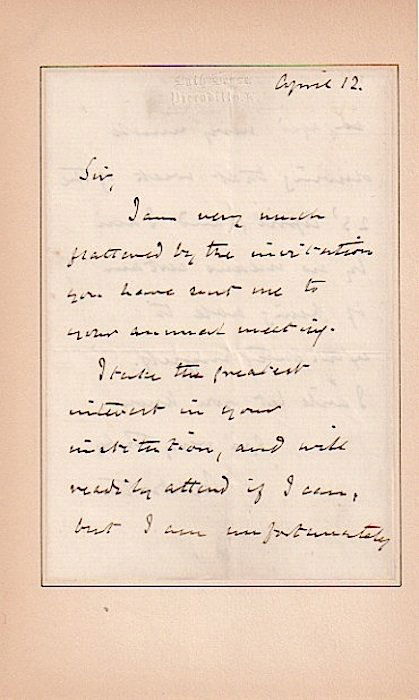 Bath House
Piccadilly
April 12.
Sir,
I am very much
flattered by the invitation
you have sent me to
your annual meeting.
I take the greatest
interest in your
institution, and will
readily attend if I can,
but I am unfortunately